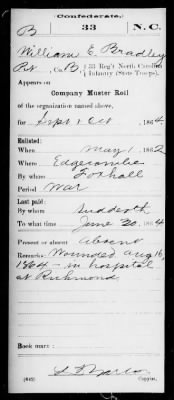 (Confederate.)
B 33 N.C.
William E. Bradley
Pvt, Co. B, 33 Reg't North Carolina
Infantry (State Troops).
Appears on
Company Muster Roll
of the organization named above,
for Sept & Oct, 1864
Enlisted:
When May 1, 1862
Where Edgecombe
By whom Foxhall
Period War
Last paid:
By whom Sudderth
To what time June 30, 1864
Present or absent Absent
Remarks: Wounded Aug 16,
1864 — in hospital
at Richmond
Book mark:
(642) Copyist.